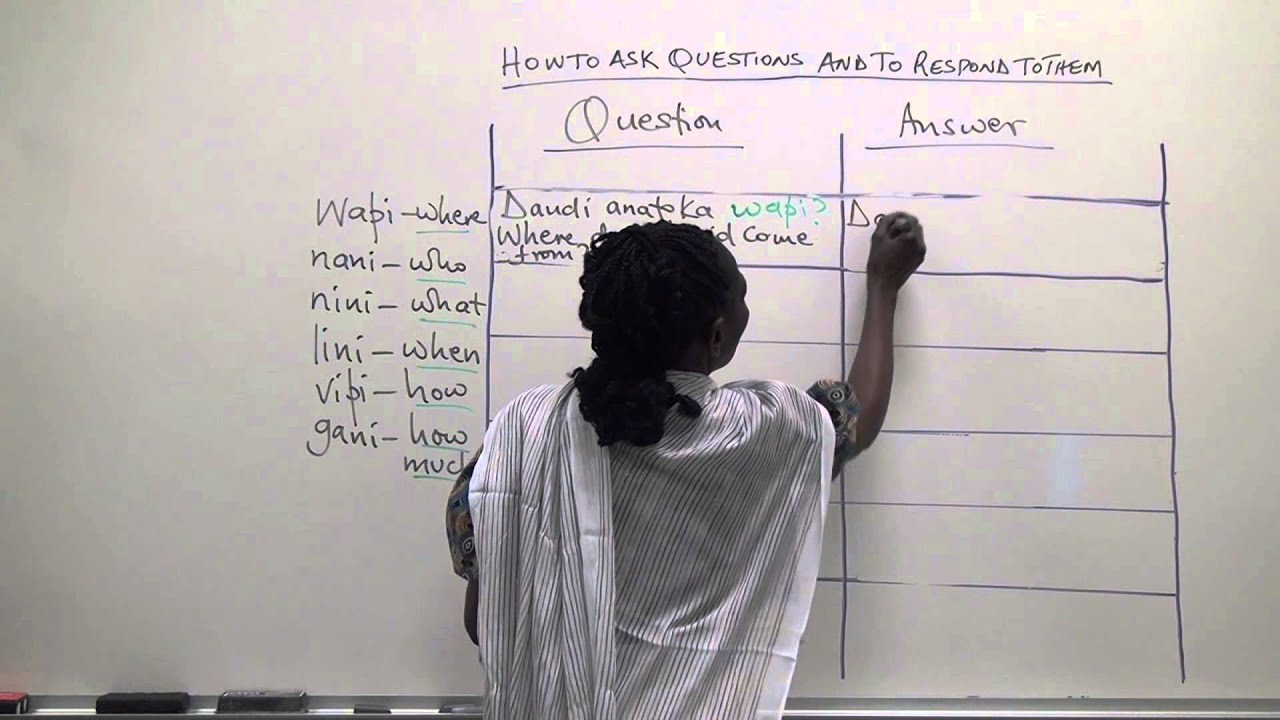 HOW TO ASK QUESTIONS AND TO RESPOND TO THEM
Question
Answer
Wapi - where
Daudi anatoka wapi?
Where come
from
Da
nani - who
nini - what
lini - when
vipi - how
gani - how
much